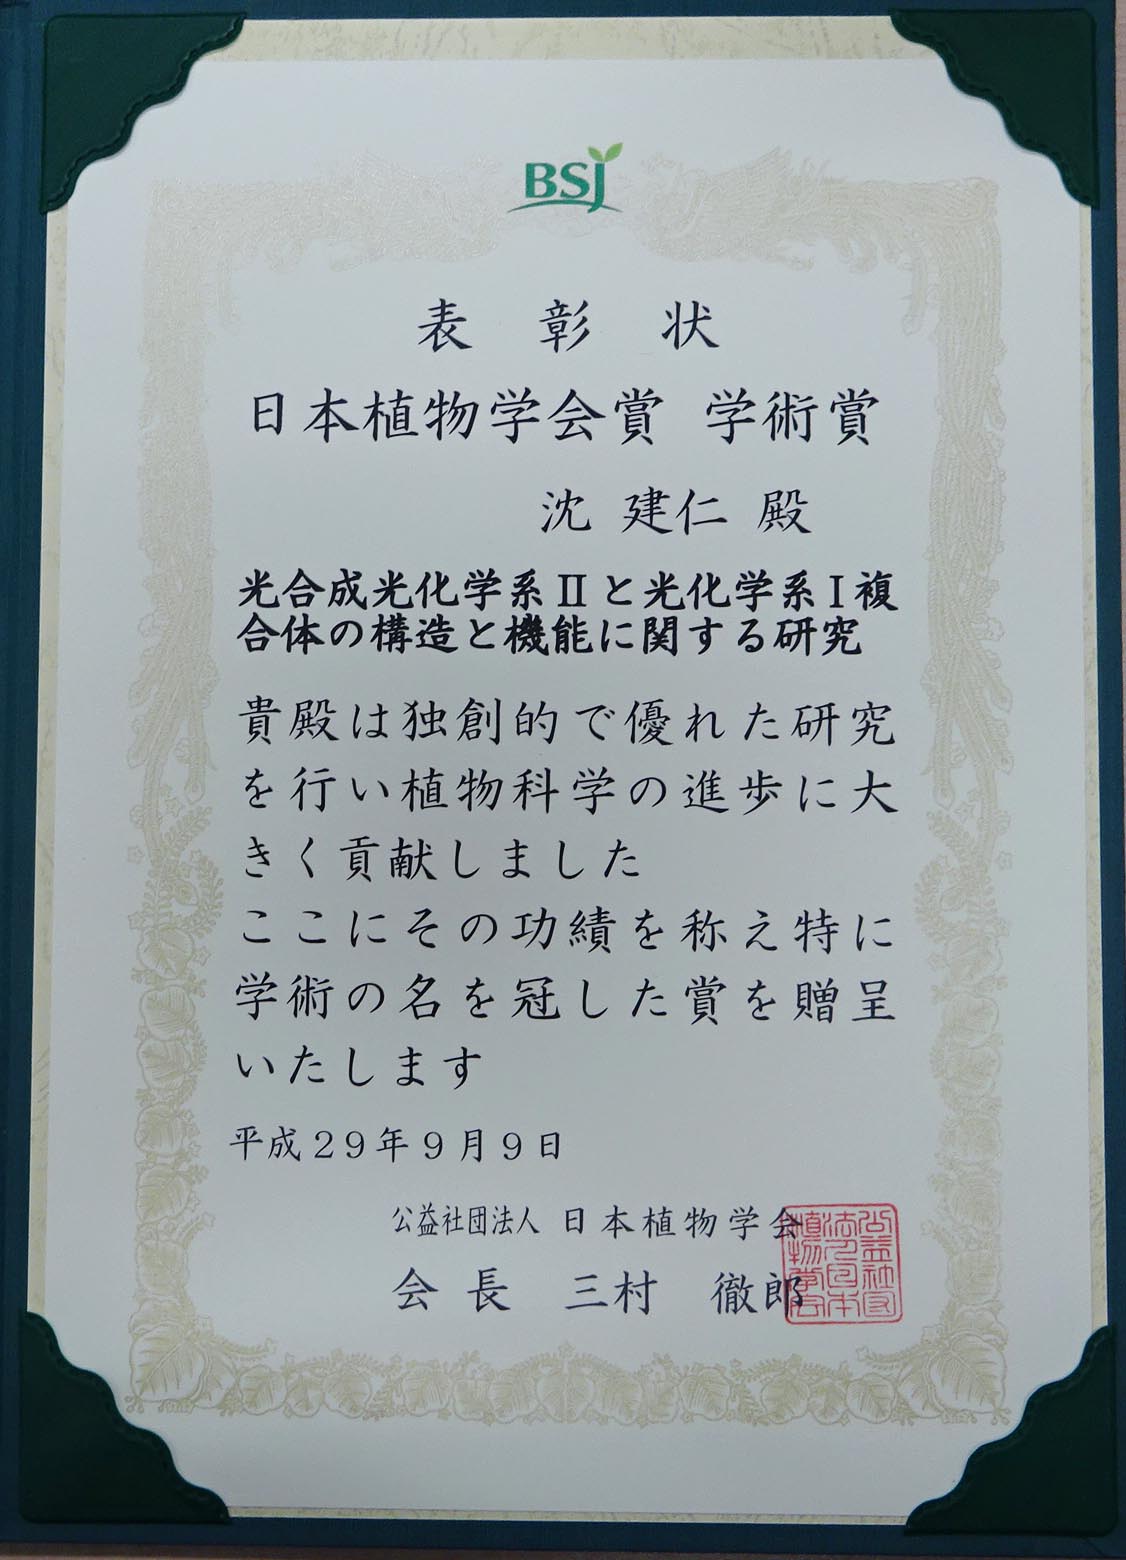 BSJ
表 彰 状
日本植物学会賞 学術賞
沈 建仁 殿
光合成光化学系Ⅱと光化学系Ⅰ複
合体の構造と機能に関する研究
貴殿は独創的で優れた研究
を行い植物科学の進歩に大
きく貢献しました
ここにその功績を称え特に
学術の名を冠した賞を贈呈
いたします
平成29年9月9日
公益社団法人 日本植物学会
会長 三村 徹郎
公益社団
法人日本
植物学会